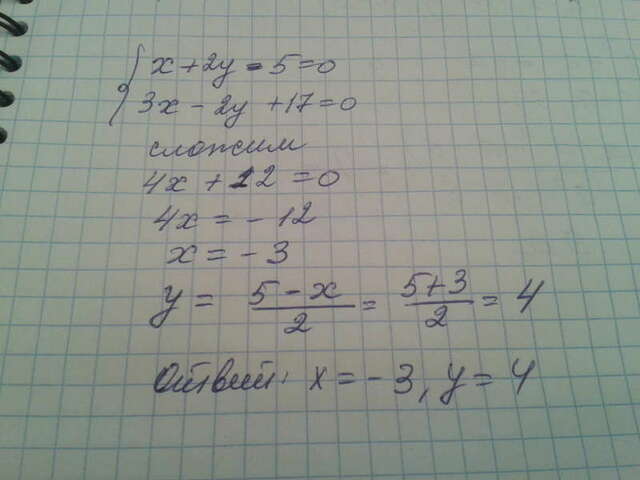 x + 2y - 5 = 0
3x - 2y + 17 = 0
сложим
4x + 12 = 0
4x = - 12
x = - 3
y = \frac{5 - x}{2} = \frac{5 + 3}{2} = 4
Ответ: x = - 3, y = 4